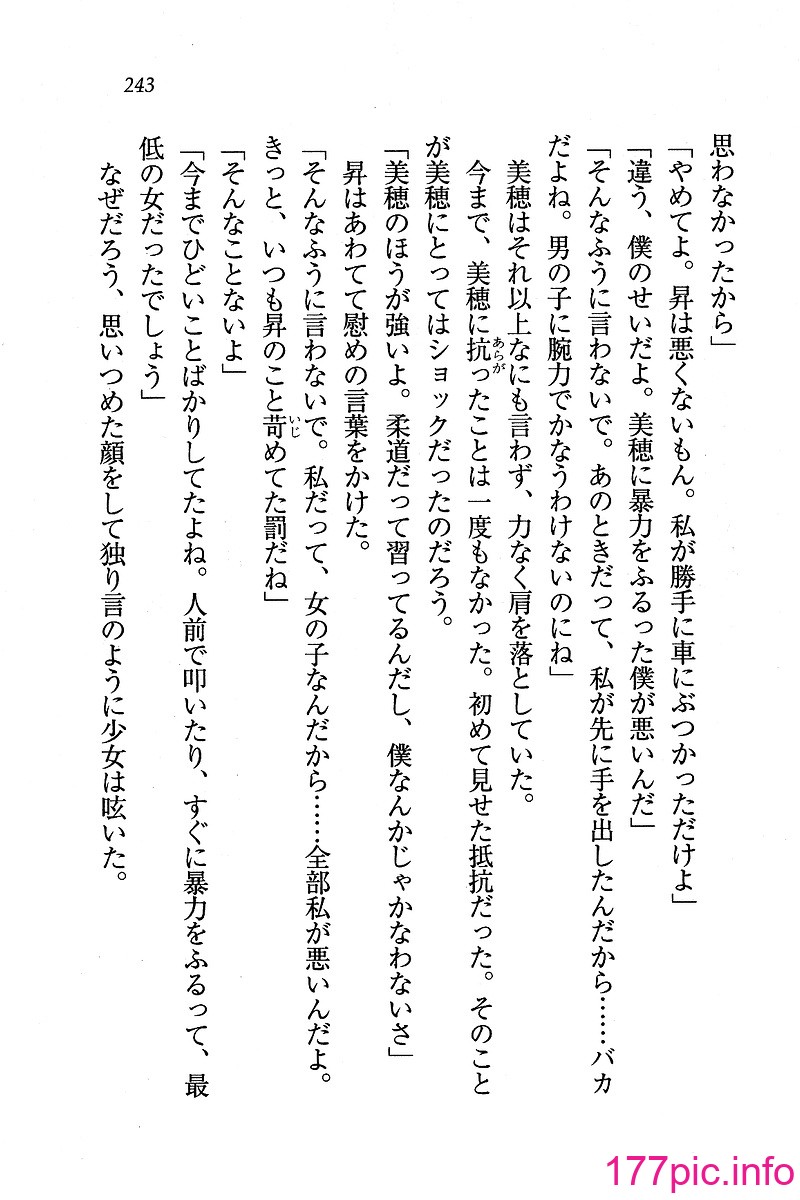 243
思わなかったから」
「やめてよ。昇は悪くないもん。私が勝手に車にぶつかっただけよ」
「違う、僕のせいだよ。美穂に暴力をふるった僕が悪いんだ」
「そんなふうに言わないで。あのときだって、私が先に手を出したんだから……バカ
だよね。男の子に腕力でかなうわけないのにね」
美穂はそれ以上なにも言わず、力なく肩を落としていた。
今まで、美穂に抗あらがったことは一度もなかった。初めて見せた抵抗だった。そのこと
が美穂にとってはショックだったのだろう。
「美穂のほうが強いよ。柔道だって習ってるんだし、僕なんかじゃかなわないさ」
昇はあわてて慰めの言葉をかけた。
「そんなふうに言わないで。私だって、女の子なんだから……全部私が悪いんだよ。
きっと、いつも昇のこと苛いじめてた罰だね」
「そんなことないよ」
「今までひどいことばかりしてたよね。人前で叩いたり、すぐに暴力をふるって、最
低の女だったでしょう」
なぜだろう、思いつめた顔をして独り言のように少女は呟いた。
177pic.info